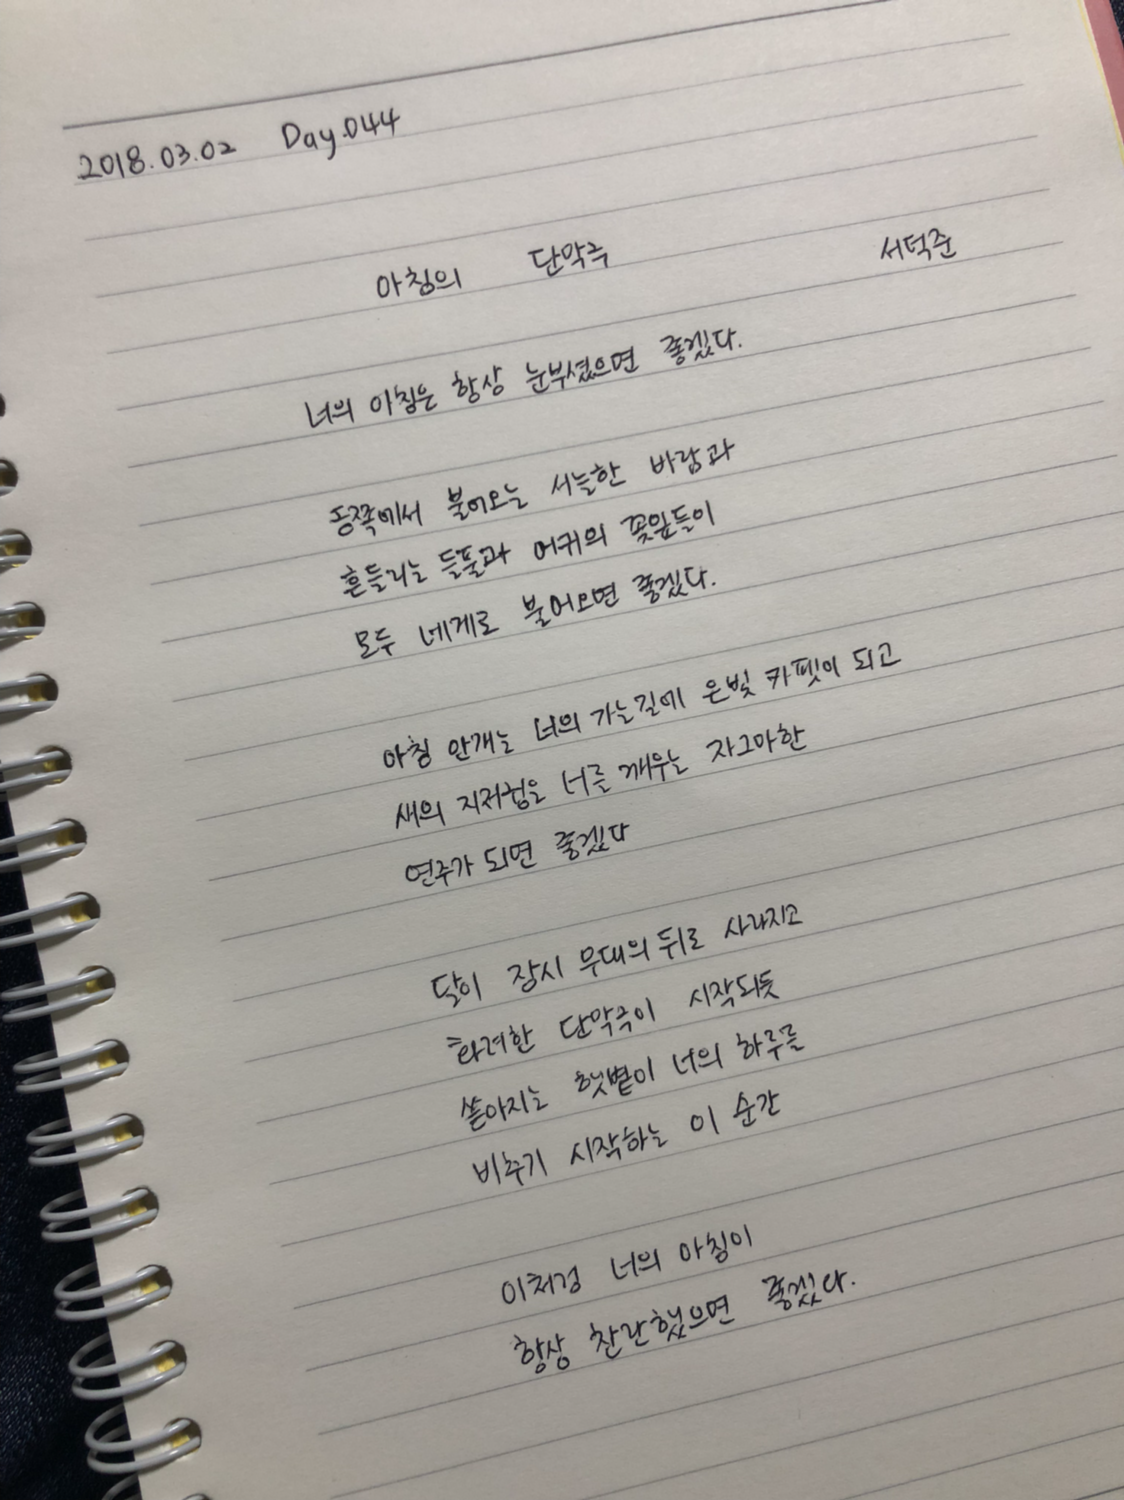 2018.03.02 Day.044
아침의 단막극 서덕준
너의 아침은 항상 눈부셨으면 좋겠다.
동쪽에서 불어오는 서늘한 바람과
흔들리는 들풀과 어귀의 꽃잎들이
모두 네게로 불어오면 좋겠다.
아침 안개는 너의 가는길에 은빛 카펫이 되고
새의 지저귐은 너를 깨우는 자그마한
연주가 되면 좋겠다
달이 잠시 무대의 뒤로 사라지고
화려한 단막극이 시작되듯
쏟아지는 햇볕이 너의 하루를
비추기 시작하는 이 순간
이처럼 너의 아침이
항상 찬란했으면 좋겠다.